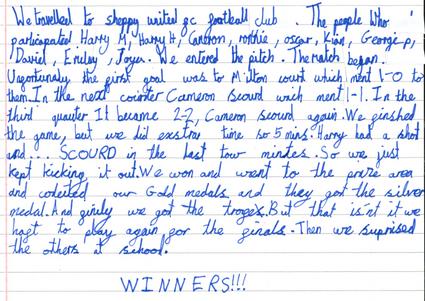 We travelled to sheppy united gc football club. The people who
participated Harry M, Harry H, Cameron, ronhie, oscar, Kian, George p,
David, Emiley, Joyen. We entered the pitch. The match began.
Ungortunatly the first goal was to Milton court which ment 1-0 to
them. In the next courter Cameron scourd wich ment 1-1. In the
third quauter It became 2-2, Cameron scourd again. We ginshed
the game, but we did exstrar time so 5 mins. Harry had a shot
and... SCOURD in the last tow mintes. So we just
kept kicking it out. We won and went to the prize area
and coleited our Gold medals and they got the silver
medal. And ginily we got the trogex. But that is'nt it we
hagt to play again gor the ginals. Then we suprised
the others at school.
WINNERS!!!